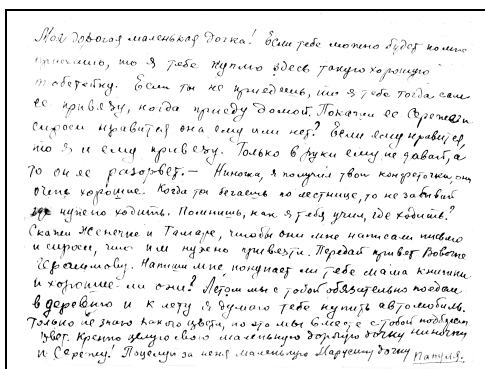 Моя дорогая маленькая дочка! Если тебе можно будет ко мне
приехать, то я тебе куплю здесь такую хорошую
тюбетейку. Если ты не приедешь, то я тебе тогда сам
ее привезу, когда приеду домой. Покажи ее Сереже и
спроси нравится она ему или нет? Если ему нравится,
то я и ему привезу. Только в руки ему не давай, а
то он ее разорвет. — Ниночка, я получил твои конфеточки, они
очень хорошие. Когда ты бегаешь по лестнице, то не забывай
где нужно ходить. Помнишь, как я тебя учил, где ходить?
Скажи Женечке и Тамаре, чтобы они мне написали письмо
и спроси, что им нужно привезти. Передай привет Вовочке
Напиши мне, покупает ли тебе мама книжки
и хорошие ли они? Летом мы с тобой обязательно поедем
в деревню и к лету я думаю тебе купить автомобиль.
Только не знаю какого цвета, но это мы вместе с тобой подберем
цвет. Крепко целую свою маленькую добрую дочку Ниночку
и Сережу! Поцелуй за меня маленькую Марусину дочку Папуля.